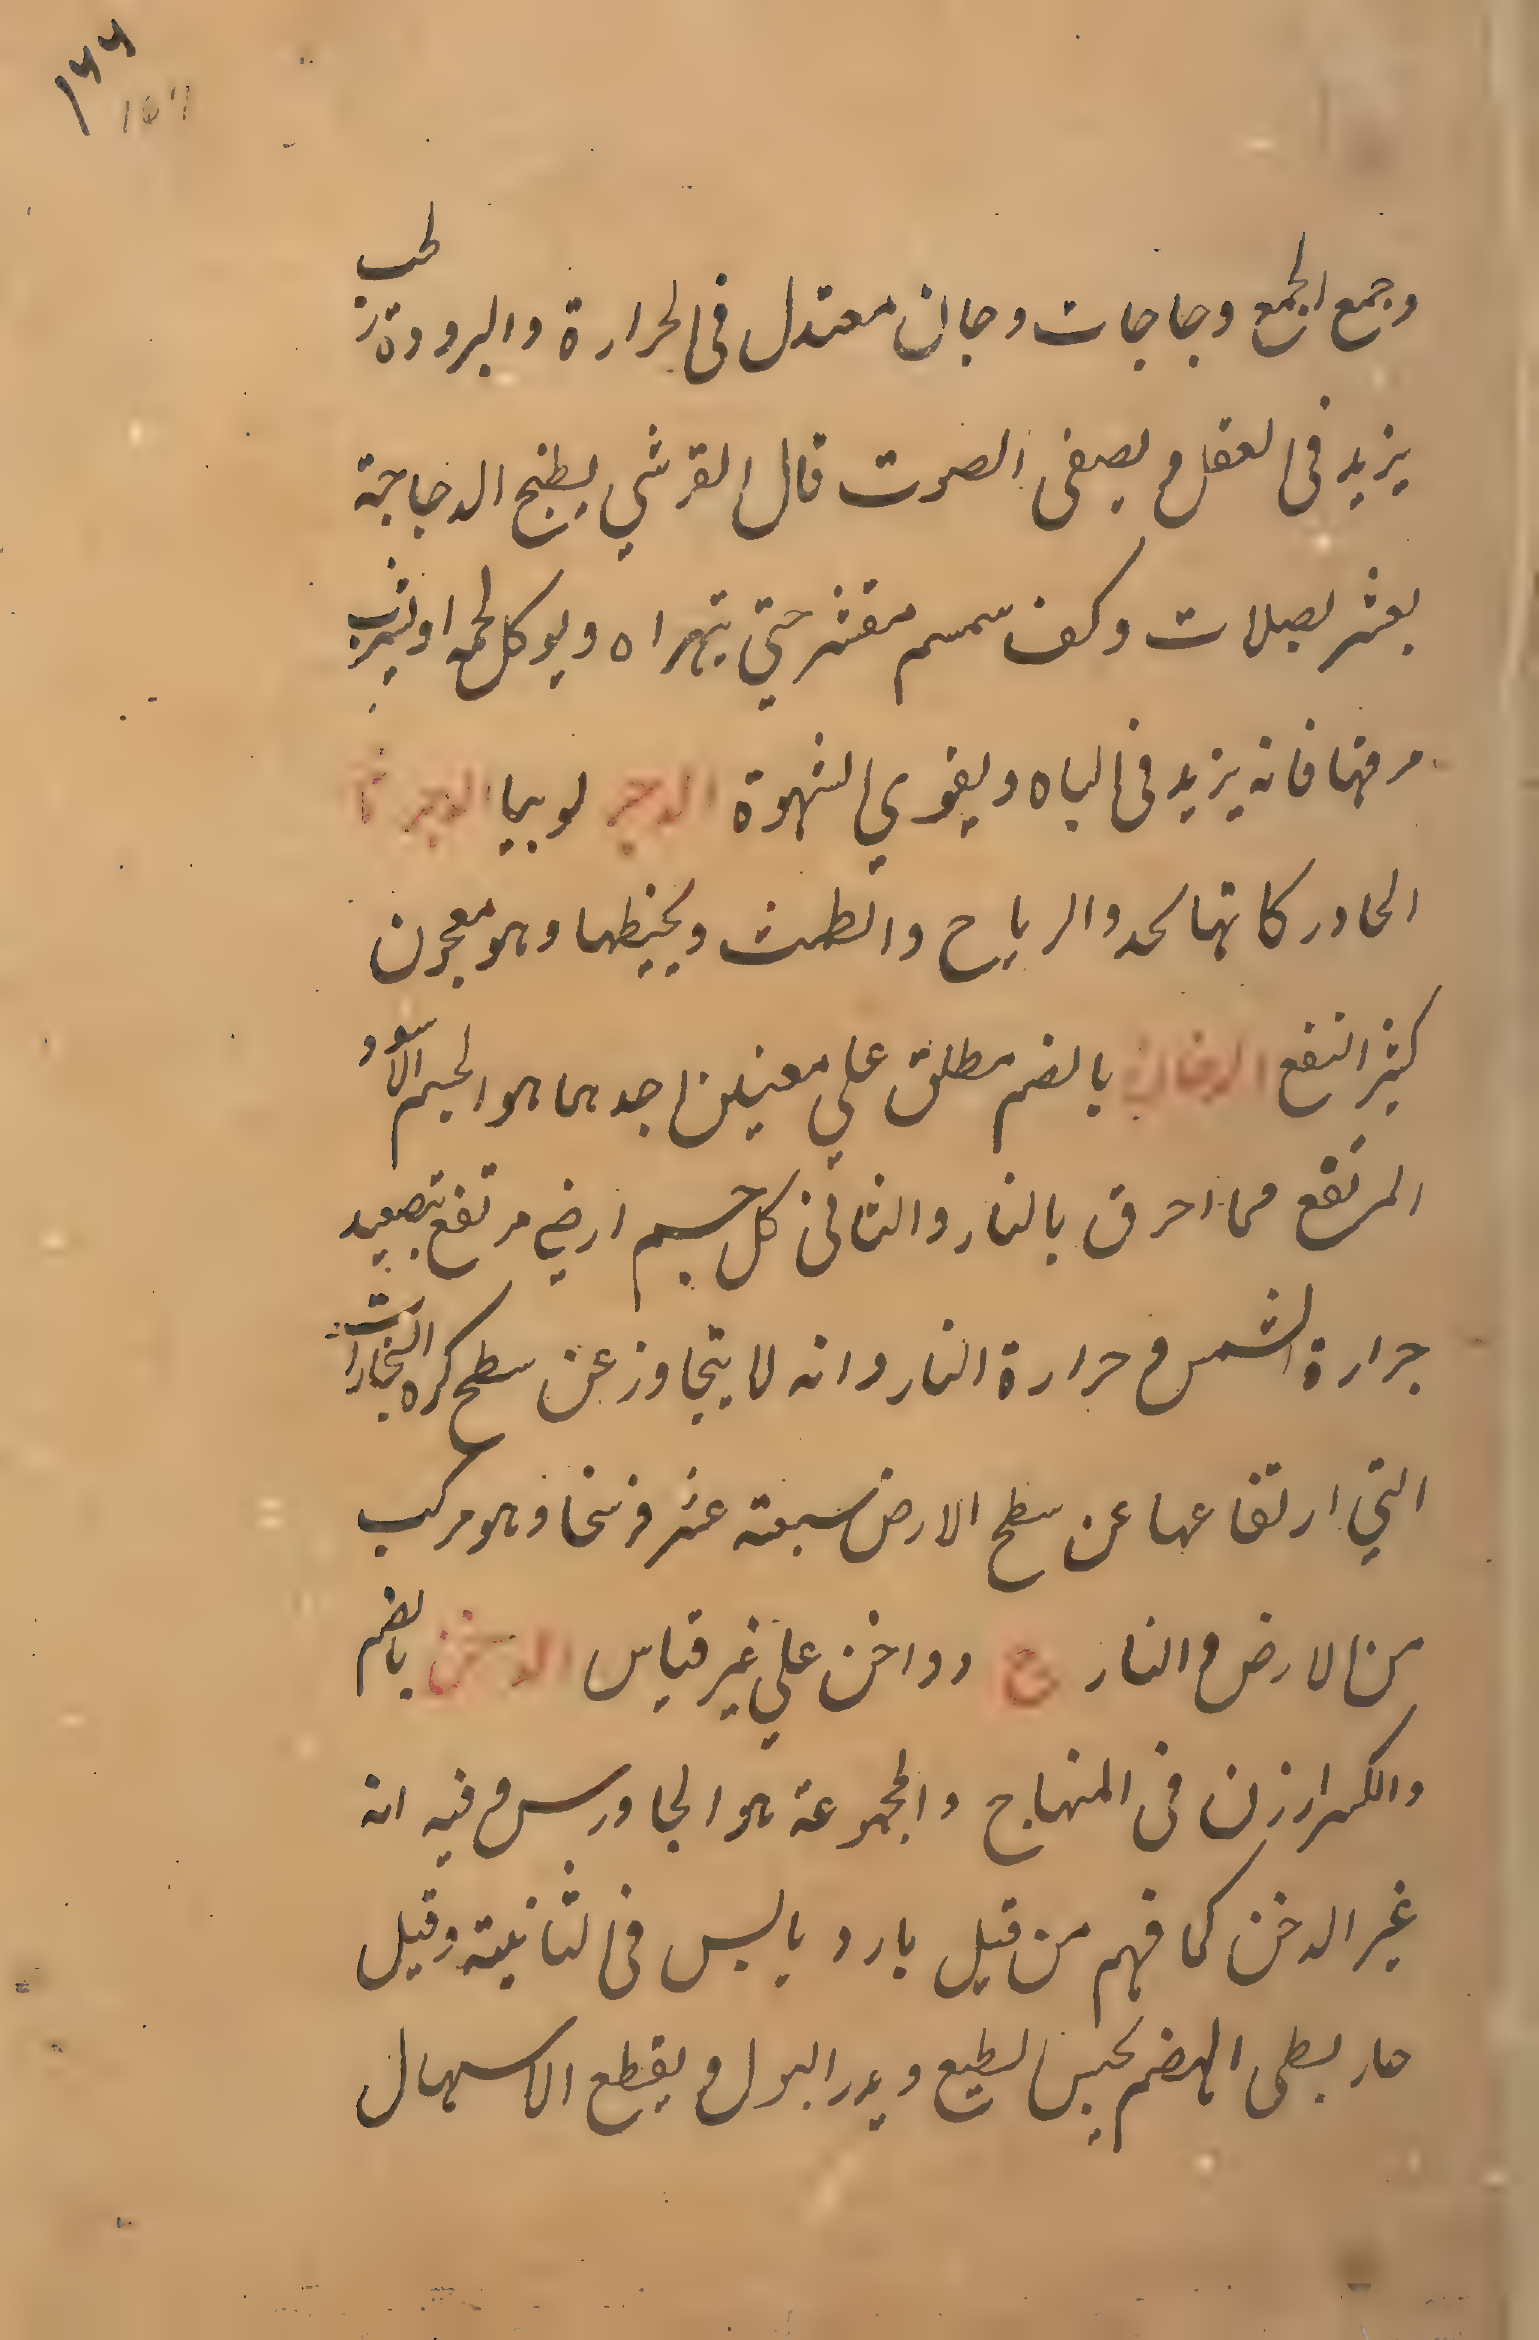 ١٧٧
156
وجمع الجمع دجاجات وجان معتدل فى الحرارة والبرودة رطب
يزيد فى العقل ويصفى الصوت قال القرشي يطبخ الدجاجة
بعشر بصلات وكف سمسم مقشر حتي يتهراه ويوكل لحمه او يشرب
مرقها فانه يزيد فى الباه ويقوي الشهوة الدجر لوبيا الدجرثا
الحادر كانها تحد والرياح والطمث ويحيطها وهو معجون
كثير النفع الدخان بالضم مطلق علي معنيين احدهما هو الجسم الاسود
المرتفع مما احرق بالنار والثانى كل جسم ارضي مرتفع بتصعيد
حرارة الشمس وحرارة النار وانه لا يتجاوز عن سطح كره البخارات
التي ارتفاعها عن سطح الارض سبعة عشر فرسخا وهو مركب
من الارض والنار ج دواخن علي غير قياس الدخن بالضم
والكسر ارزن فى المنهاج والمجموعة هو الجاورس وفيه انه
غير الدخن كما فهم من قيل بارد يابس فى الثانية وقيل
حار بطى الهضم يحبس الطبع ويدر البول ويقطع الاسهال